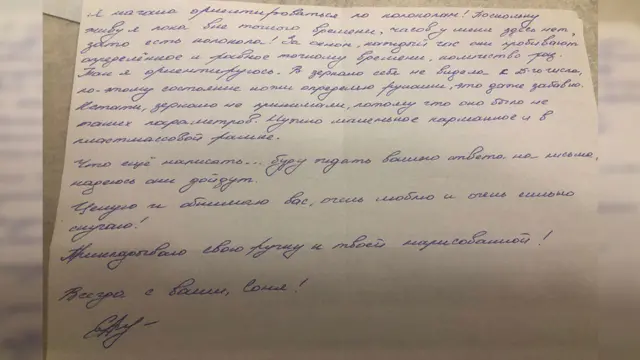 Я начала ориентироваться по колоколам! Поскольку
живу я пока вне точного времени, часов у меня здесь нет,
зато есть колокола! За окном, каждый час они пробивают
определённое и равное точному времени, количество раз.
Так я ориентируюсь. В зеркало себя не видела с 25-го числа,
по-этому состояние кожи определяю руками, это даже забавно.
Кстати, зеркало не приняли, потому что оно было не
таких параметров. Нужно маленькое карманное и в
пластмассовой рамке.
Что ещё написать... буду ждать вашего ответа на письма,
надеюсь они дойдут.
Целую и обнимаю вас, очень люблю и очень сильно
скучаю!
Прикладываю свою ручку к твоей нарисованной!
Всегда с вами, Соня!